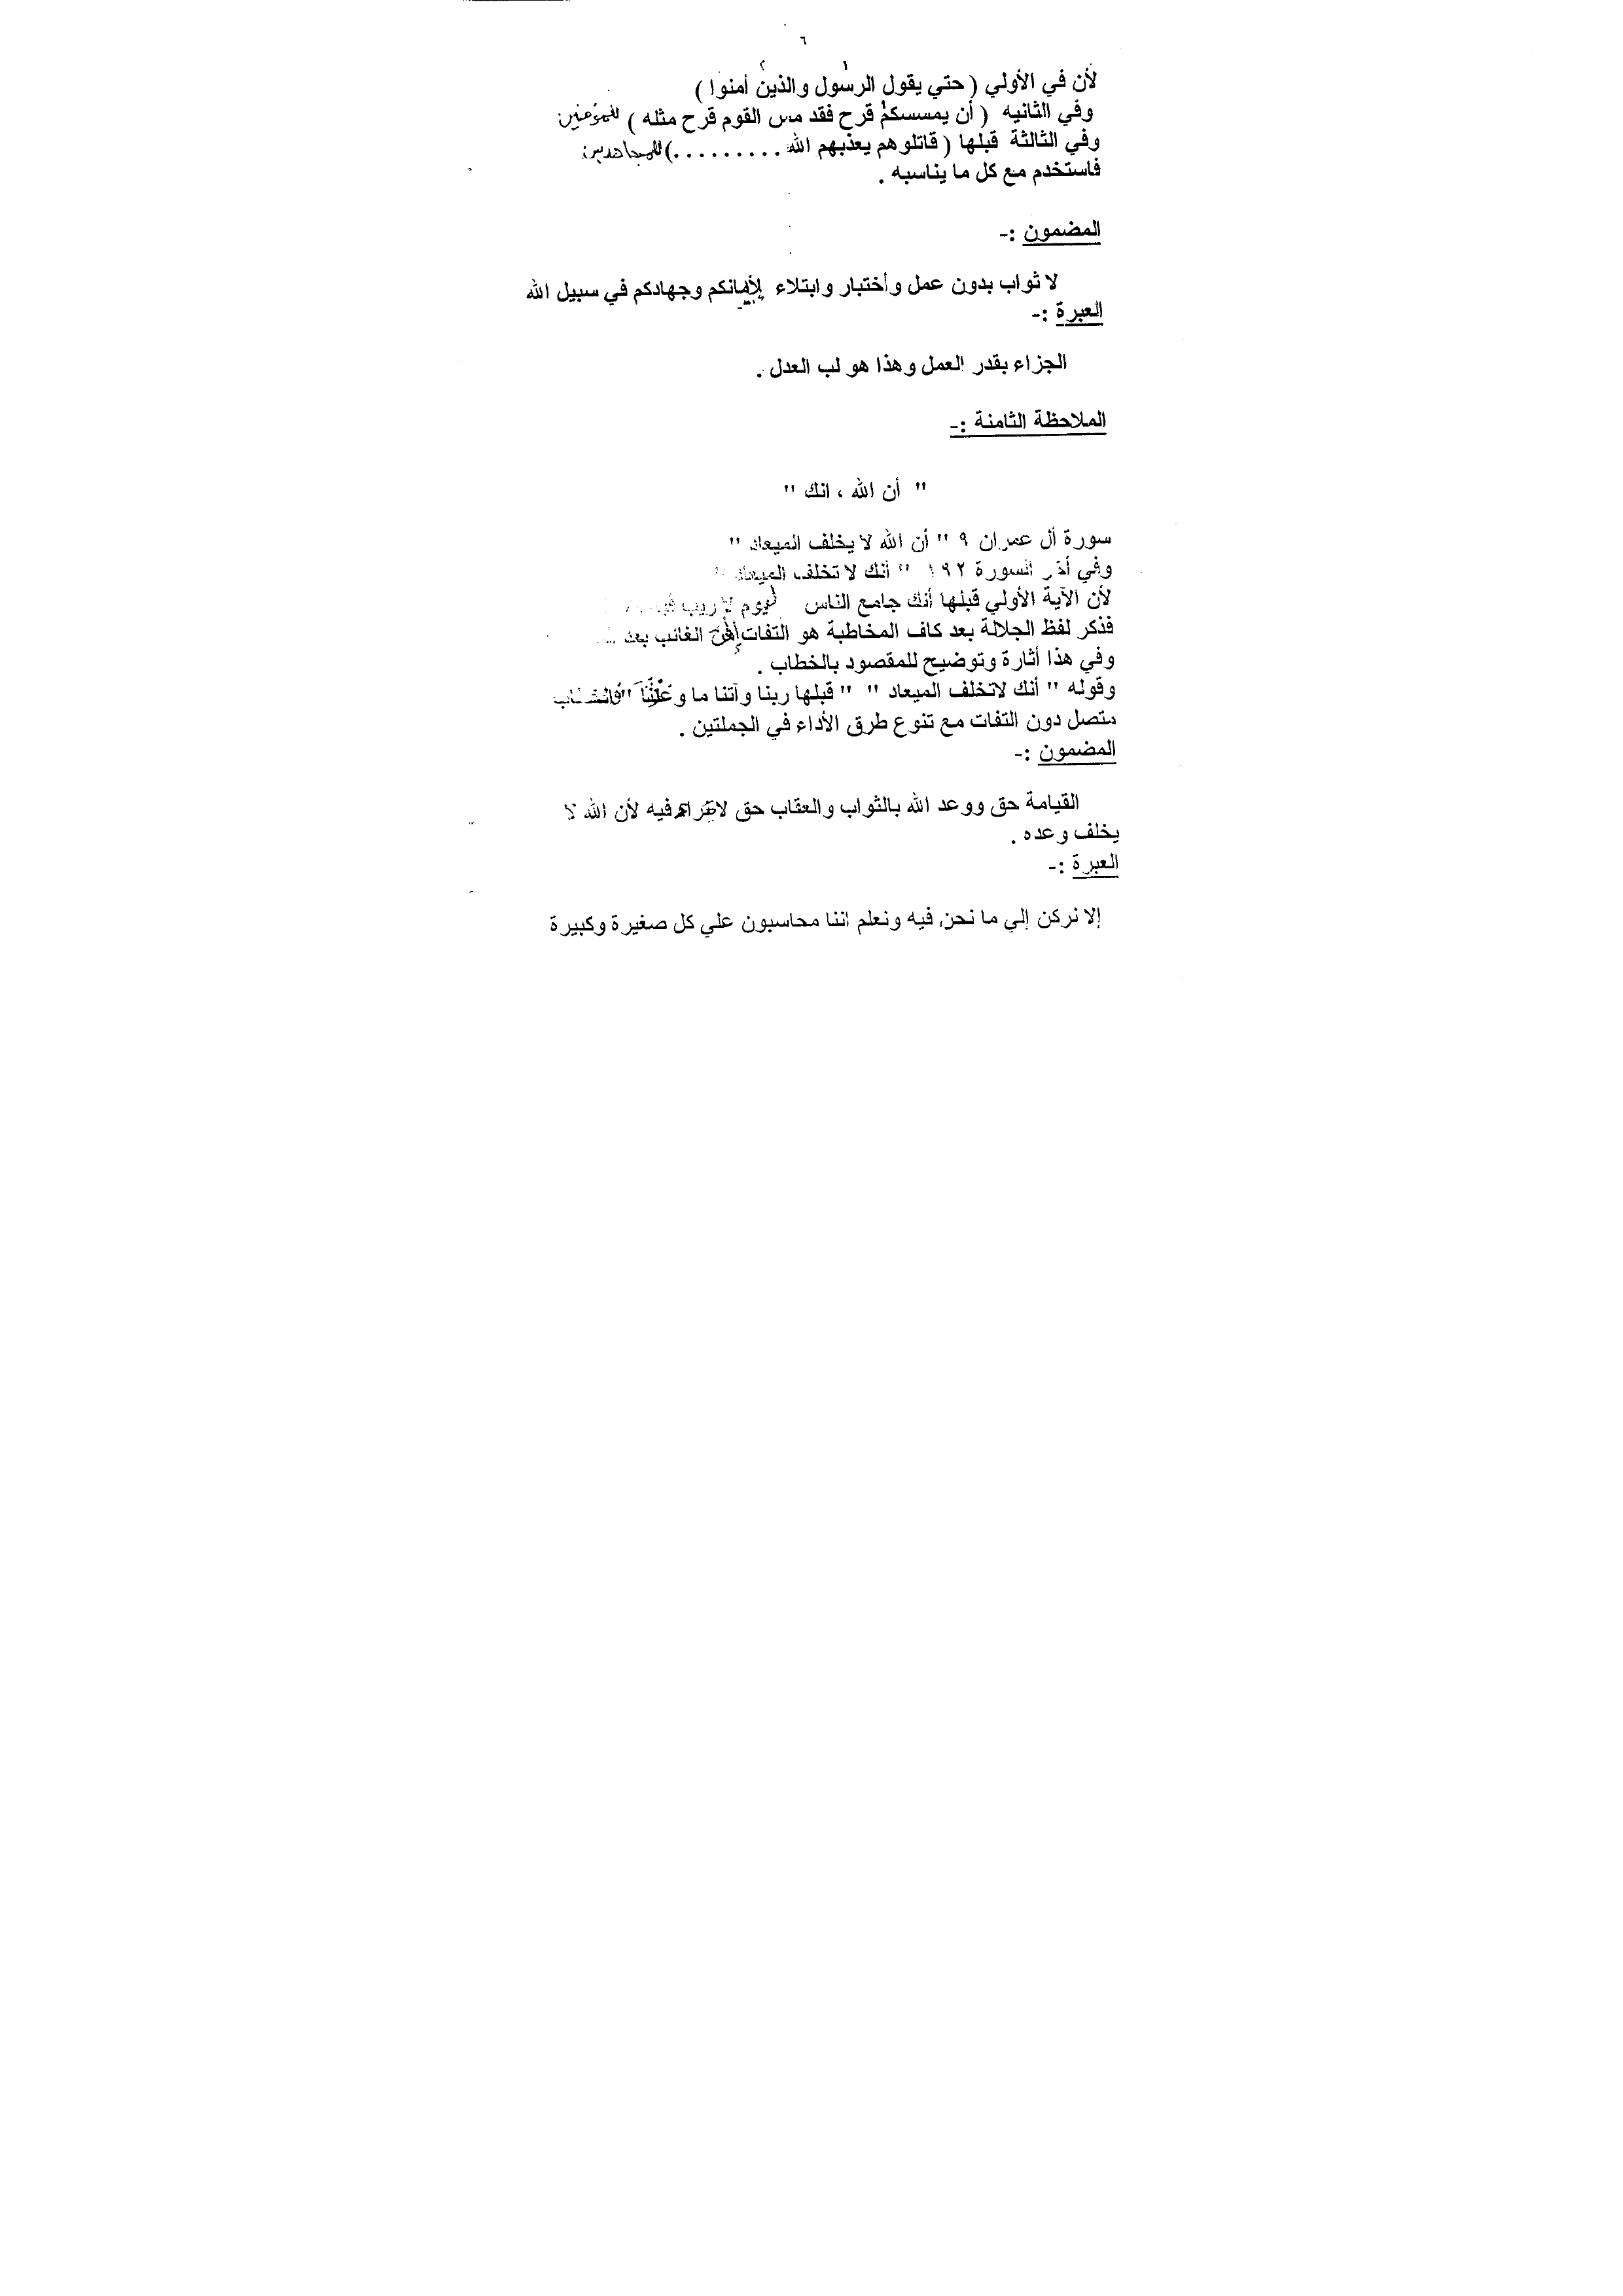 ٦
لأن في الأولي ( حتي يقول الرسول والذين أمنوا )
وفي الثانيه ( أن يمسسكم قرح فقد مس القوم قرح مثله ) للمؤمنين
وفي الثالثة قبلها ( قاتلوهم يعذبهم الله . . . . . . . . . ) للمجاهدين
فاستخدم مع كل ما يناسبه .
المضمون :-
لا ثواب بدون عمل وأختبار وابتلاء لإيمانكم وجهادكم في سبيل الله
العبرة :-
الجزاء بقدر العمل وهذا هو لب العدل .
الملاحظة الثامنة :-
" أن الله ، انك "
سورة أل عمران ٩ " أن الله لا يخلف الميعاد "
وفي أخر السورة ١٩٢ " أنك لا تخلف الميعاد "
لأن الآية الأولي قبلها أنك جامع الناس ليوم لا ريب
فذكر لفظ الجلالة بعد كاف المخاطبة هو التفات الغائب بعد
وفي هذا أثارة وتوضيح للمقصود بالخطاب .
وقوله " أنك لاتخلف الميعاد " " قبلها ربنا وآتنا ما وعدتنا "
متصل دون التفات مع تنوع طرق الأداء في الجملتين .
المضمون :-
القيامة حق ووعد الله بالثواب والعقاب حق فيه لأن الله لا
يخلف وعده .
العبرة :-
إلا نركن إلي ما نحن فيه ونعلم اننا محاسبون علي كل صغيرة وكبيرة